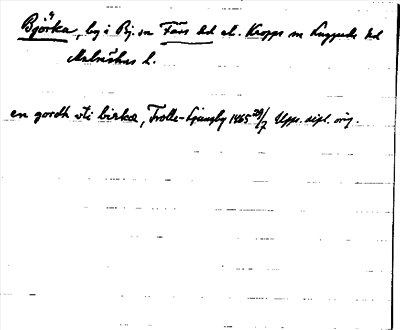 Björka, by i Bj. sn Färs hd el. Kropps sn Luggude hd
Malmöhus l.
en gordh vti birka, Trolle-Ljungby 1465 29/7 Upps. dipl. orig.